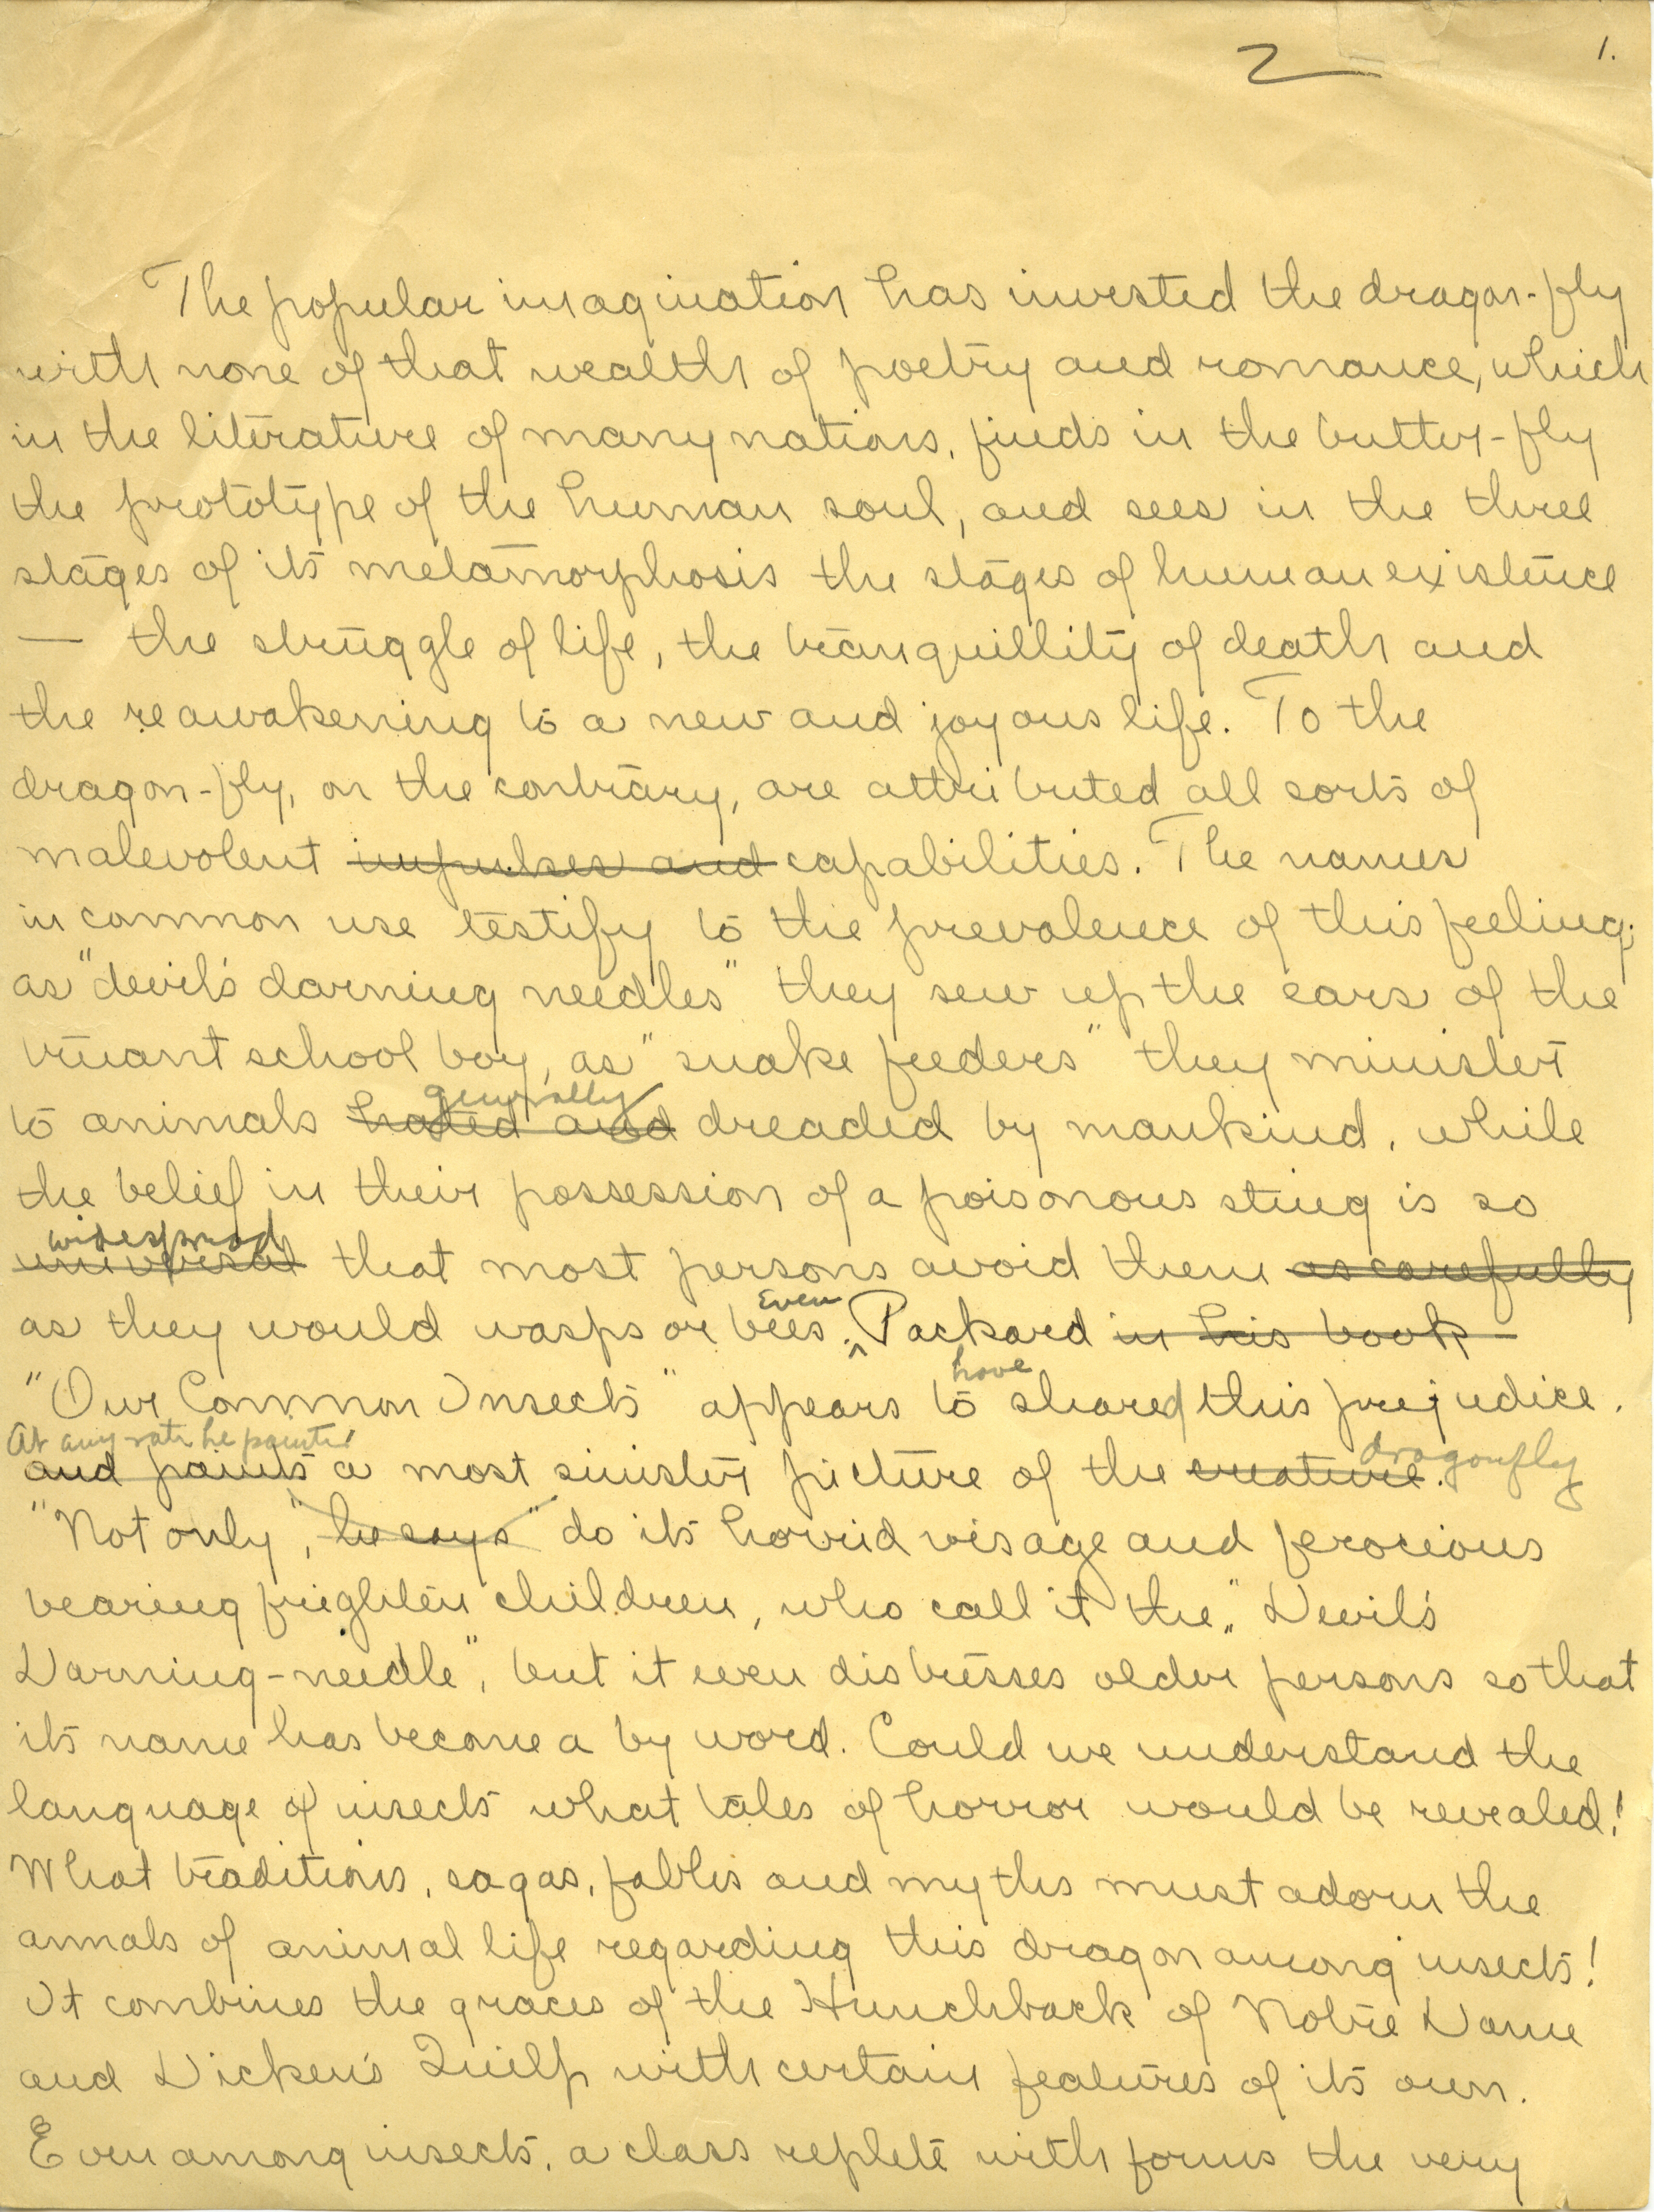 2
1.
The popular imagination has invested the dragon-fly
with none of that wealth of poetry and romance, which
in the literature of many nations, finds in the butter-fly
the prototype of the human soul, and sees in the three
stages of its metamorphosis the stages of human existence
— the struggle of life, the tranquillity of death and
the reawakening to a new and joyous life. To the
dragon-fly, on the contrary, are attributed all sorts of
malevolent impulses and capabilities. The names
in common use testify to the prevalence of this feeling;
as "devil's darning needles" they sew up the ears of the
truant school boy, as "snake feeders" they minister
generally
to animals hated and dreaded by mankind, while
the belief in their possession of a poisonous sting is so
widespread
universal that most persons avoid them as carefully
as they would wasps or bees. Even Packard in his book
"Our Common Insects" appears to have shared this prejudice.
At any rate he paints
and paints a most sinister picture of the creature. dragonfly
"Not only", he says "do its horrid visage and ferocious
bearing frighten children, who call it the "Devil's
Darning-needle", but it even distresses older persons so that
its name has become a by word. Could we understand the
language of insects what tales of horror would be revealed!
What traditions, sagas, fables and myths must adorn the
annals of animal life regarding this dragon among insects!
It combines the graces of the Hunchback of Notre Dame
and Dicken's Quilp with certain features of its own.
Even among insects, a class replete with forms the very